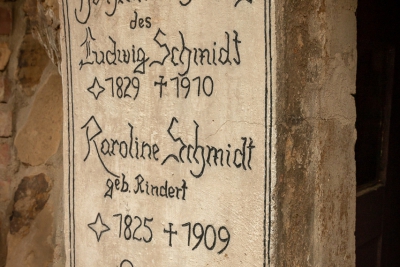 des
Ludwig Schmidt
✧ 1829 ✝ 1910
Karoline Schmidt
geb. Rindert
✧ 1825 ✝ 1909